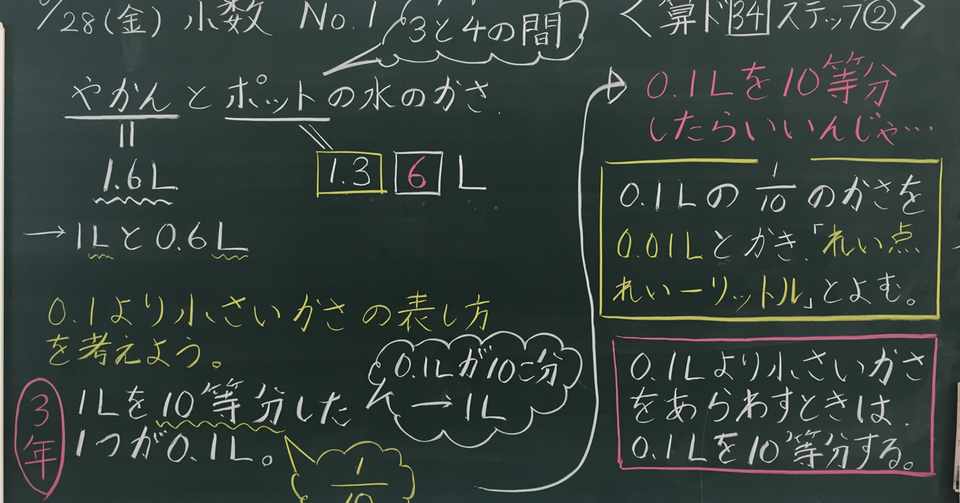 /28(金) 小数 No.1
3と4の間
やかんとポットの水のかさ.
1.6L
1.3 6 L
→1Lと0.6L
0.1より小さいかさの表し方
を考えよう。
3年
1Lを10等分した
1つが0.1L。
0.1Lが10こ分
→1L
1/10
<算ド34ステップ②>
0.1Lを10等分
したらいいんじゃ…
0.1Lの1/10のかさを
0.01Lとかき,「れい点
れいーリットル」とよむ。
0.1Lより小さいかさ
をあらわすときは.
0.1Lを10等分する。